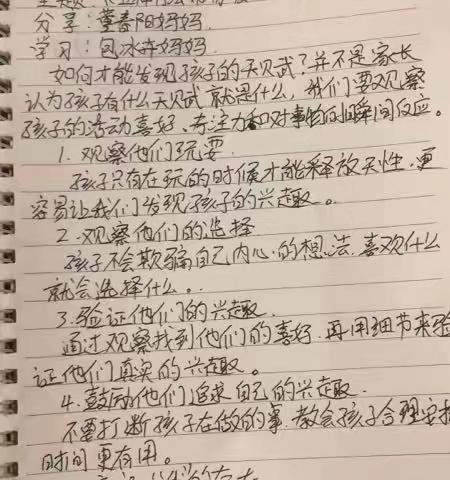 分享：董春阳妈妈.
学习：包冰卉妈妈.
如何才能发现孩子的天贝武？并不是家长
认为孩子有什么天贝武就是什么，我们要观察
孩子的活动喜好、专注力和对事物的瞬间反应。
1. 观察他们玩耍
孩子只有在玩的时候才能释放天性.更
容易让我们发现孩子的兴趣。
2.观察他们的选择
孩子不会欺骗自己内心的想法.喜欢什么
就会选择什么。
3.验证他们的兴趣.
通过观察找到他们的喜好.再用细节来验
证他们真实的兴趣。
4.鼓励他们追求自己的兴趣.
不要打断孩子在做的事.教会孩子合理安排
时间更有用。